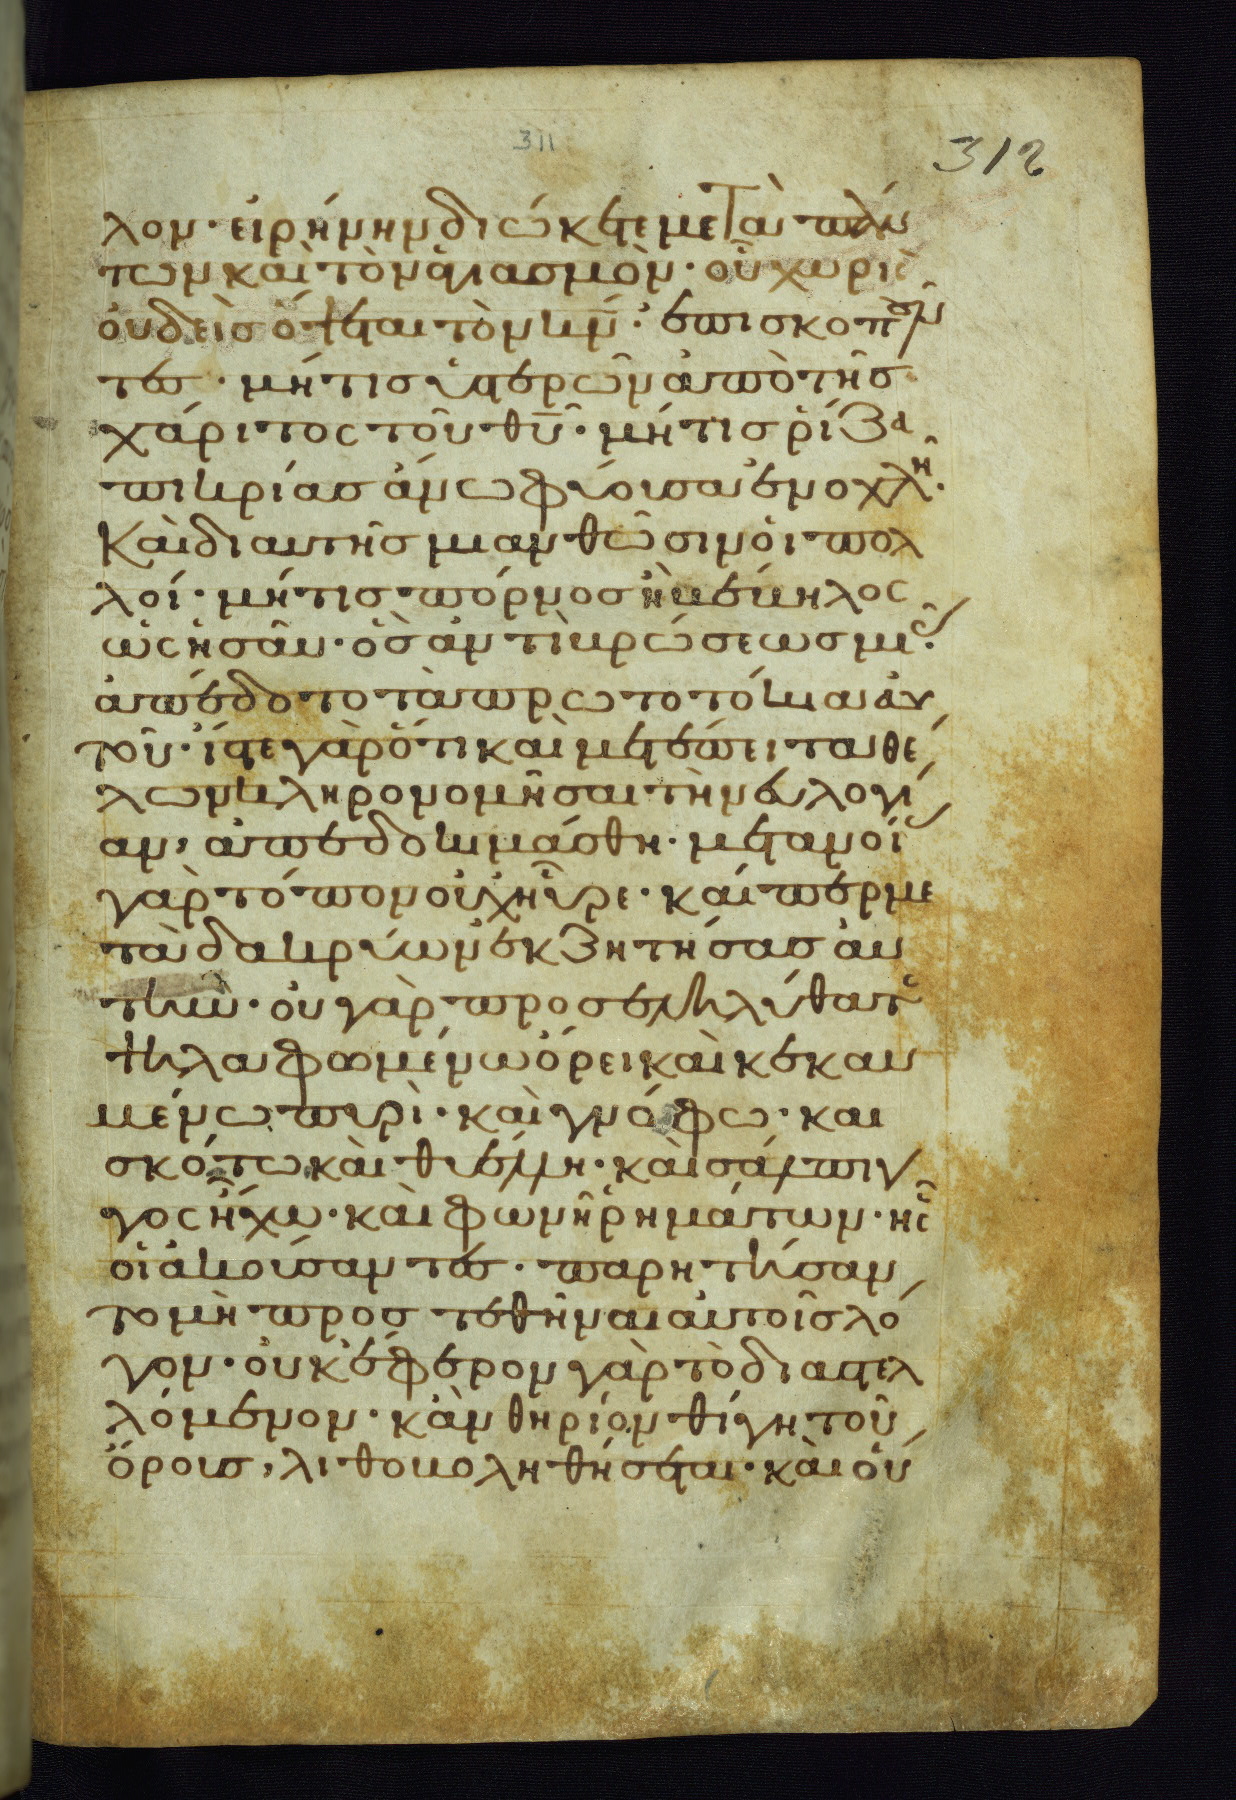 311
312
λον· εἰρήνην διώκετε μετὰ πάν
των καὶ τὸν ἁγιασμὸν· οὗ χωρὶς
οὐδεὶς ὄψεται τὸν κ̅ν̅· ἐπισκοποῦν
τες· μή τις ὑστερῶν ἀπὸ τῆς
χάριτος τοῦ θ̅υ̅· μή τις ῥίζα
πικρίας ἄνω φύουσα ἐνοχλῆ·
Καὶ διαυτῆς μιανθῶσιν οἱ πολ
λοί· μή τις πόρνος ἢ βέβηλος
ὡς ἡσαῦ· ὃς ἀντὶ βρώσεως μιᾶς
ἀπέδοτο τὰ πρωτοτόκια αὐ
τοῦ· ἴστε γὰρ ὅτι καὶ μετέπειτα θέ
λων κληρονομῆσαι τὴν εὐλογί
αν, ἀπεδοκιμάσθη· μετανοί
ας γὰρ τόπον οὐχ ηὗρε· καίπερ με
τὰ δακρύων ἐκζητήσας αὐ
τήν· οὐ γὰρ προσεληλύθατε
ψηλαφωμένω ὄρει καὶ κεκαυ
μένω πυρὶ· καὶ γνόφω· και
σκότω καὶ θυέλλη· καὶ σάλπιγ
γος ἤχω· καὶ φωνῆ ῥημάτων· ἧς
οἱ ἀκούσαντες· παρητήσαν
το μὴ προστεθῆναι αὐτοῖς λό
γον· οὐκ ἔφερον γὰρ τὸ διαστελ
λόμενον· κἂν θηρίον θίγη τοῦ
ὄρους, λιθοβοληθήσεται· καὶ οὕ